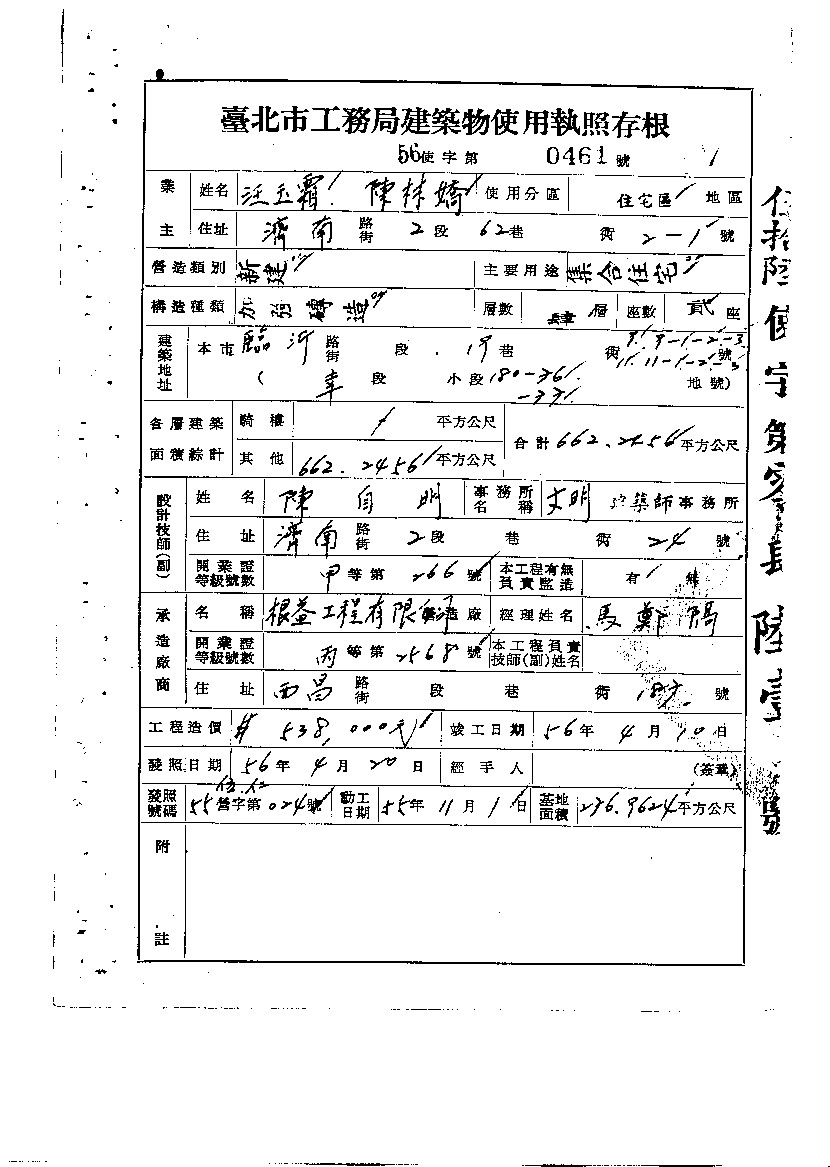 臺北市工務局建築物使用執照存根
56使字第 0461 號
業主 姓名 汪玉霜 陳林嬌 使用分區 住宅區 地區
住址 濟南 路街 2段 62巷 衖 2-1 號
營造類別 新建 主要用途 集合住宅
構造種類 加強磚造 層數 肆層 座數 貳座
建築地址 本市 臨沂 路街 段 巷 衖 9.9-1-2-3 11.11-1-2-3 號
( 幸段 小段 180-36 -33 地號)
各層建築面積綜計 騎樓 / 平方公尺 合計 662.2456 平方公尺
其他 662.2456 平方公尺
設計技師(副) 姓名 陳自明 事務所名稱 文明 建築師事務所
住址 濟南 路街 2段 巷 衖 24 號
開業證等級號數 甲等第 266 號 本工程有無負責監造 有 無
承造廠商 名稱 根益工程有限 營造廠 經理姓名 馬鄭
開業證等級號數 丙等第 2568 號 本工程負責技師(副)姓名
住址 西昌 路街 段 巷 衖 號
工程造價 # 538,000元 竣工日期 56年 4月 10日
發照日期 56年 4月 20日 經手人 (簽章)
發照號碼 55營字第 號 動工日期 55年 11月 1日 基地面積 236.9624 平方公尺
附註
伍拾陸使字第零肆陸壹號